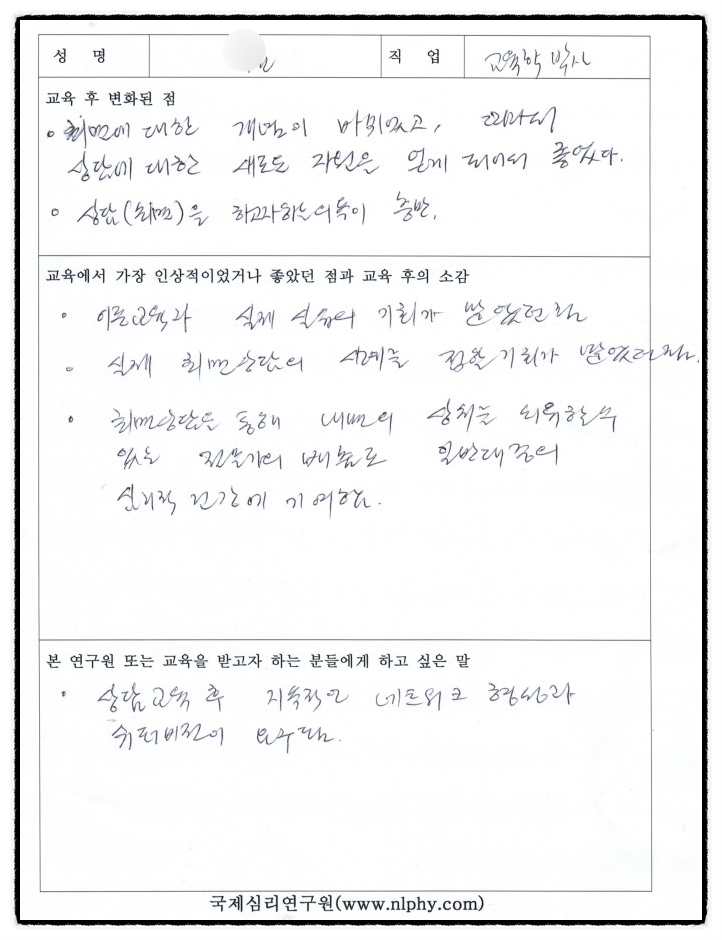 성 명 직 업 교육학 박사
교육 후 변화된 점
최면에 대한 개념이 바뀌었고, 따라서
상담에 대한 새로운 자원을 얻게 되어서 좋았다.
상담(최면)을 하고자하는 의욕이 충만.
교육에서 가장 인상적이었거나 좋았던 점과 교육 후의 소감
이론교육과 실제 실습의 기회가 많았던 점
실제 최면상담의 사례를 접할 기회가 많았던 점.
최면상담을 통해 내면의 상처를 치유할 수
있는 전문가의 배출로 일반대중의
심리적 건강에 기여함.
본 연구원 또는 교육을 받고자 하는 분들에게 하고 싶은 말
상담교육 후 지속적인 네트워크 형성과
슈퍼비전이 요구됨.
국제심리연구원(www.nlphy.com)